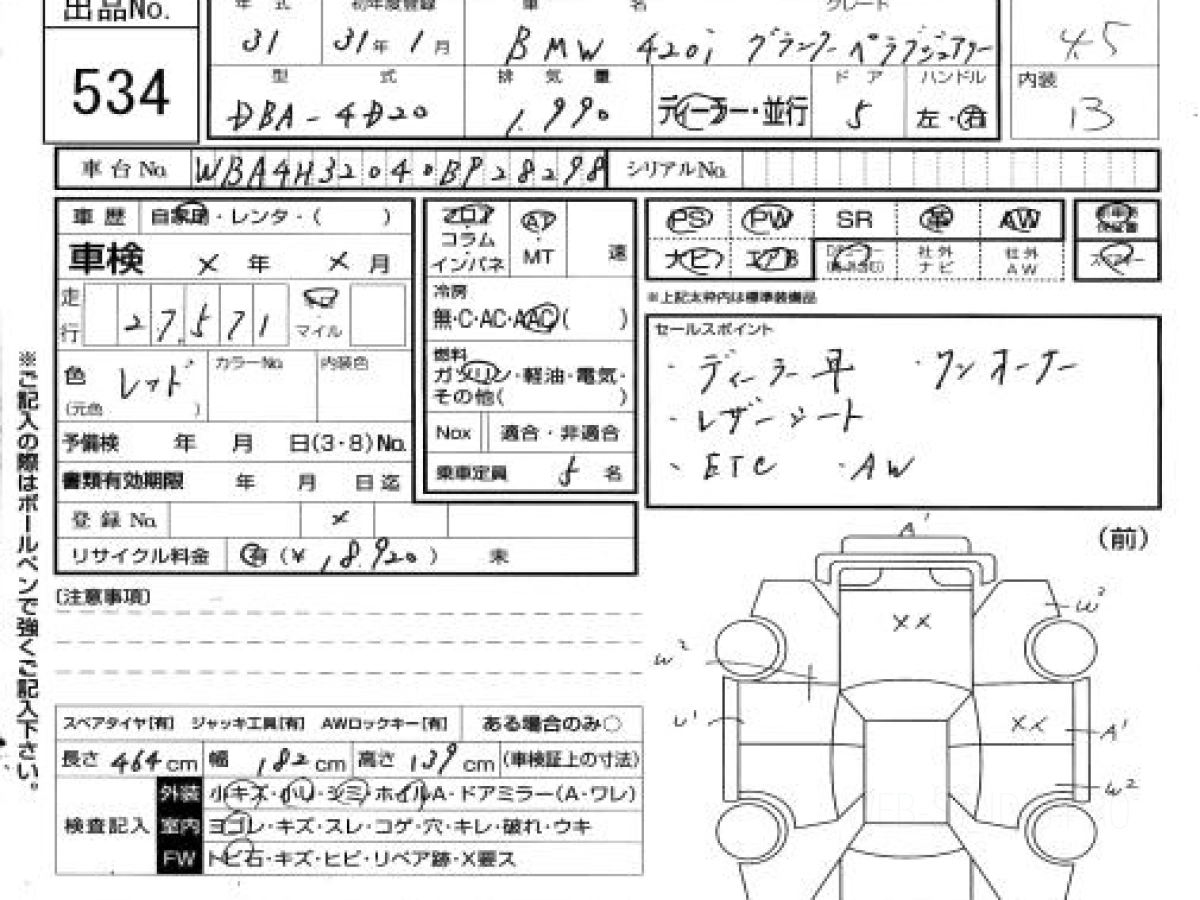 出品No.
534
年 式 初年度登録 車 名 グレード
31 31年 1月 BMW 420i グランクーペラグジュアリー
4.5
型 式 排 気 量 ディーラー・並行 ドア ハンドル 内装
DBA-4D20 1,990 5 左・右 13
車台No. WBA4H32040BP28298 シリアルNo.
車歴 自家用・レンタ・( )
フロア コラム インパネ AT・MT 速
PS PW SR 革 AW 新車時保証書
ナビ エアB 社外ナビ 社外AW
車検 × 年 × 月
※上記太枠内は標準装備品
走行 27,571 マイル
冷房
無・C・AC・AAC( )
セールスポイント
・ディーラー車 ・ワンオーナー
・レザーシート
・ETC ・AW
色 レッド カラーNo. 内装色
(元色 )
燃料
ガソリン・軽油・電気・
その他( )
Nox 適合・非適合
乗車定員 5 名
予備検 年 月 日(3・8)No.
書類有効期限 年 月 日迄
登録No. ×
リサイクル料金 有(¥18,920) 未
※ご記入の際はボールペンで強くご記入下さい。
(注意事項)
スペアタイヤ[有] ジャッキ工具[有] AWロックキー[有] ある場合のみ○
長さ 464cm 幅 182cm 高さ 139cm (車検証上の寸法)
検査記入
外装 小キズ・小凹・シミ・ホイルA・ドアミラー(A・ワレ)
室内 ヨゴレ・キズ・スレ・コゲ・穴・キレ・破れ・ウキ
FW トビ石・キズ・ヒビ・リペア跡・X要ス
(前)
A1
W2
XX
W2
U1
XX
A1
W2